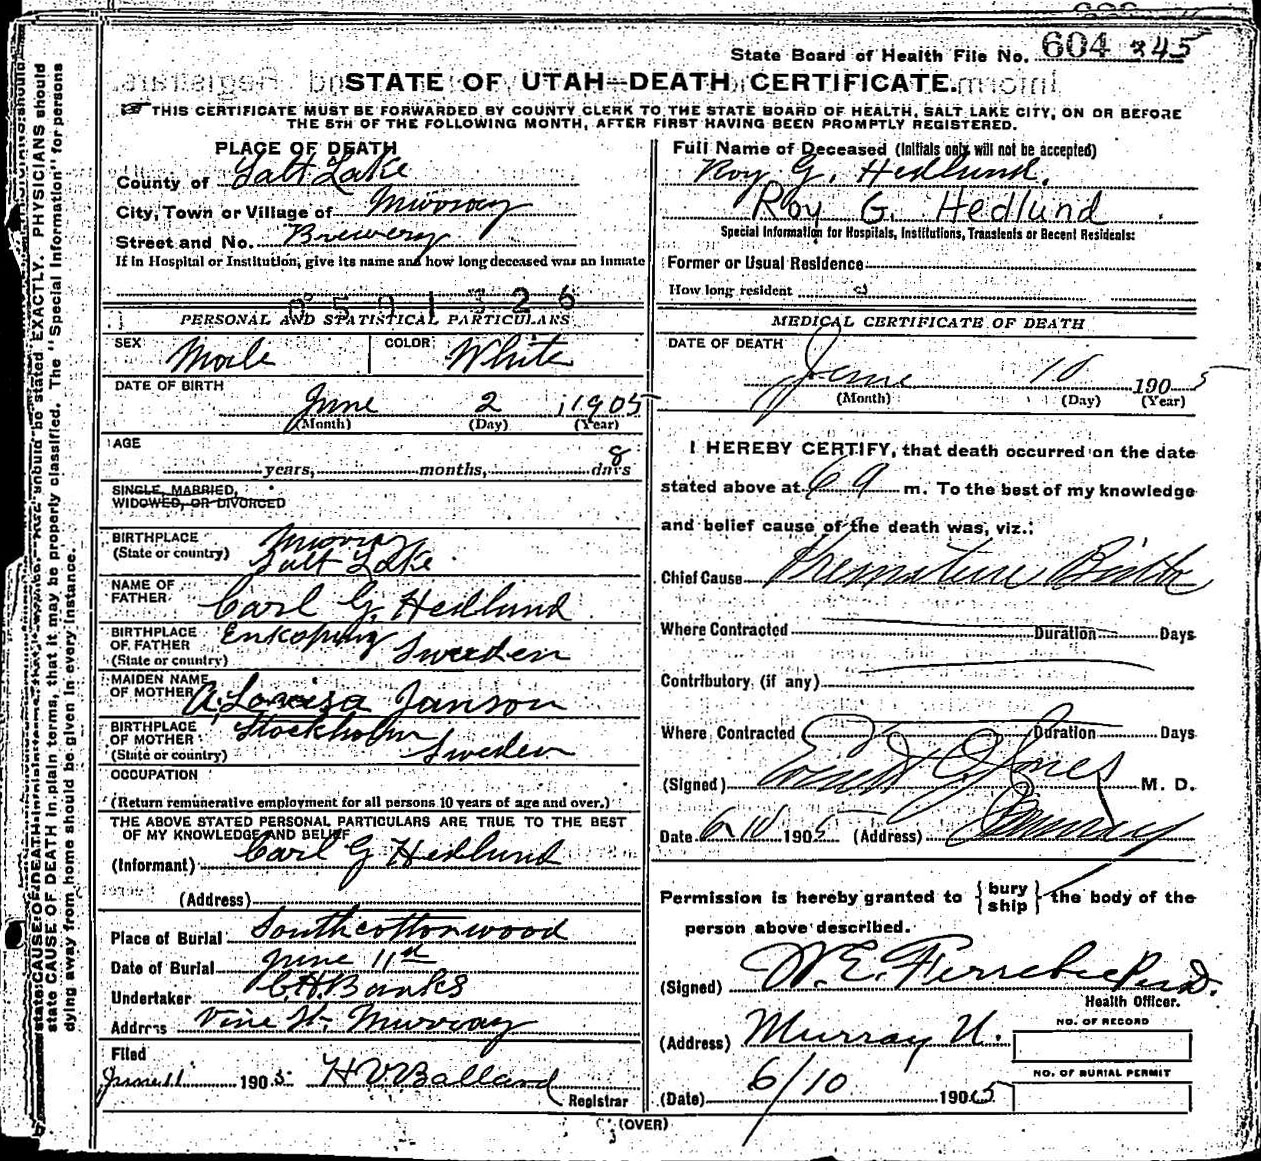 State Board of Health File No. 604 245
STATE OF UTAH—DEATH CERTIFICATE.
THIS CERTIFICATE MUST BE FORWARDED BY COUNTY CLERK TO THE STATE BOARD OF HEALTH, SALT LAKE CITY, ON OR BEFORE
THE 5TH OF THE FOLLOWING MONTH, AFTER FIRST HAVING BEEN PROMPTLY REGISTERED.
PLACE OF DEATH
County of Salt Lake
City, Town or Village of Murray
Street and No. Brewery
If in Hospital or Institution, give its name and how long deceased was an inmate
0591326
PERSONAL AND STATISTICAL PARTICULARS
SEX Male COLOR White
DATE OF BIRTH
June 2 1905
(Month) (Day) (Year)
AGE
years, months, 8 days
SINGLE, MARRIED,
WIDOWED, OR DIVORCED
BIRTHPLACE Murray
(State or country) Salt Lake
NAME OF
FATHER Carl G. Hedlund
BIRTHPLACE OF FATHER Enkoping
(State or country) Sweden
MAIDEN NAME
OF MOTHER A. Lovisa Janson
BIRTHPLACE OF MOTHER Stockholm
(State or country) Sweden
OCCUPATION
(Return remunerative employment for all persons 10 years of age and over.)
THE ABOVE STATED PERSONAL PARTICULARS ARE TRUE TO THE BEST
OF MY KNOWLEDGE AND BELIEF
(Informant) Carl G Hedlund
(Address)
Place of Burial South cottonwood
Date of Burial June 11th
Undertaker C.H. Banks
Address Vine St. Murray
Filed
June 11 1905 H V Ballard
Registrar
Full Name of Deceased (Initials only will not be accepted)
Roy G. Hedlund.
Roy G. Hedlund
Special Information for Hospitals, Institutions, Transients or Recent Residents:
Former or Usual Residence
How long resident
MEDICAL CERTIFICATE OF DEATH
DATE OF DEATH
June 10 1905
(Month) (Day) (Year)
I HEREBY CERTIFY, that death occurred on the date
stated above at 6 a m. To the best of my knowledge
and belief cause of the death was, viz.:
Chief Cause Premature Birth
Where Contracted Duration Days
Contributory (if any)
Where Contracted Duration Days
(Signed) Jones M. D.
Date 6 10 1905 (Address) Murray
Permission is hereby granted to {bury ship} the body of the
person above described.
(Signed) W.E. Ferrebee
Health Officer.
(Address) Murray U.
NO. OF RECORD
NO. OF BURIAL PERMIT
(Date) 6/10 1905
(OVER)
state CAUSE OF DEATH in plain terms, that it may be properly classified. The "Special Information" for persons
dying away from home should be given in every instance.
should be stated EXACTLY. PHYSICIANS should